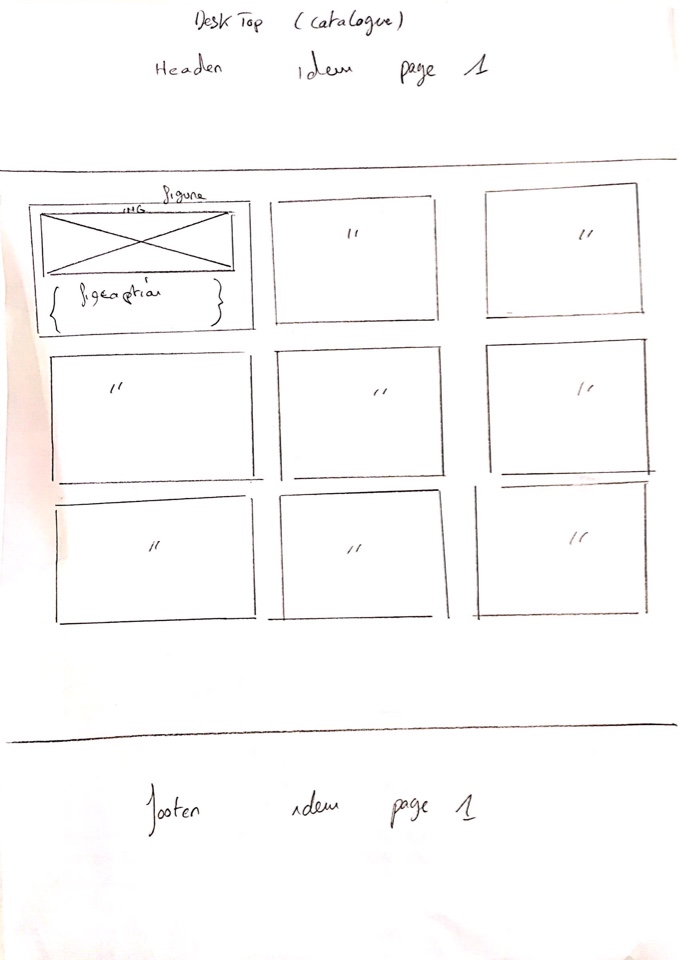 DeskTop (catalogue)
Header idem page 1
figure
IMG
{ figcaption }
" "
" " "
" " "
footer idem page 1